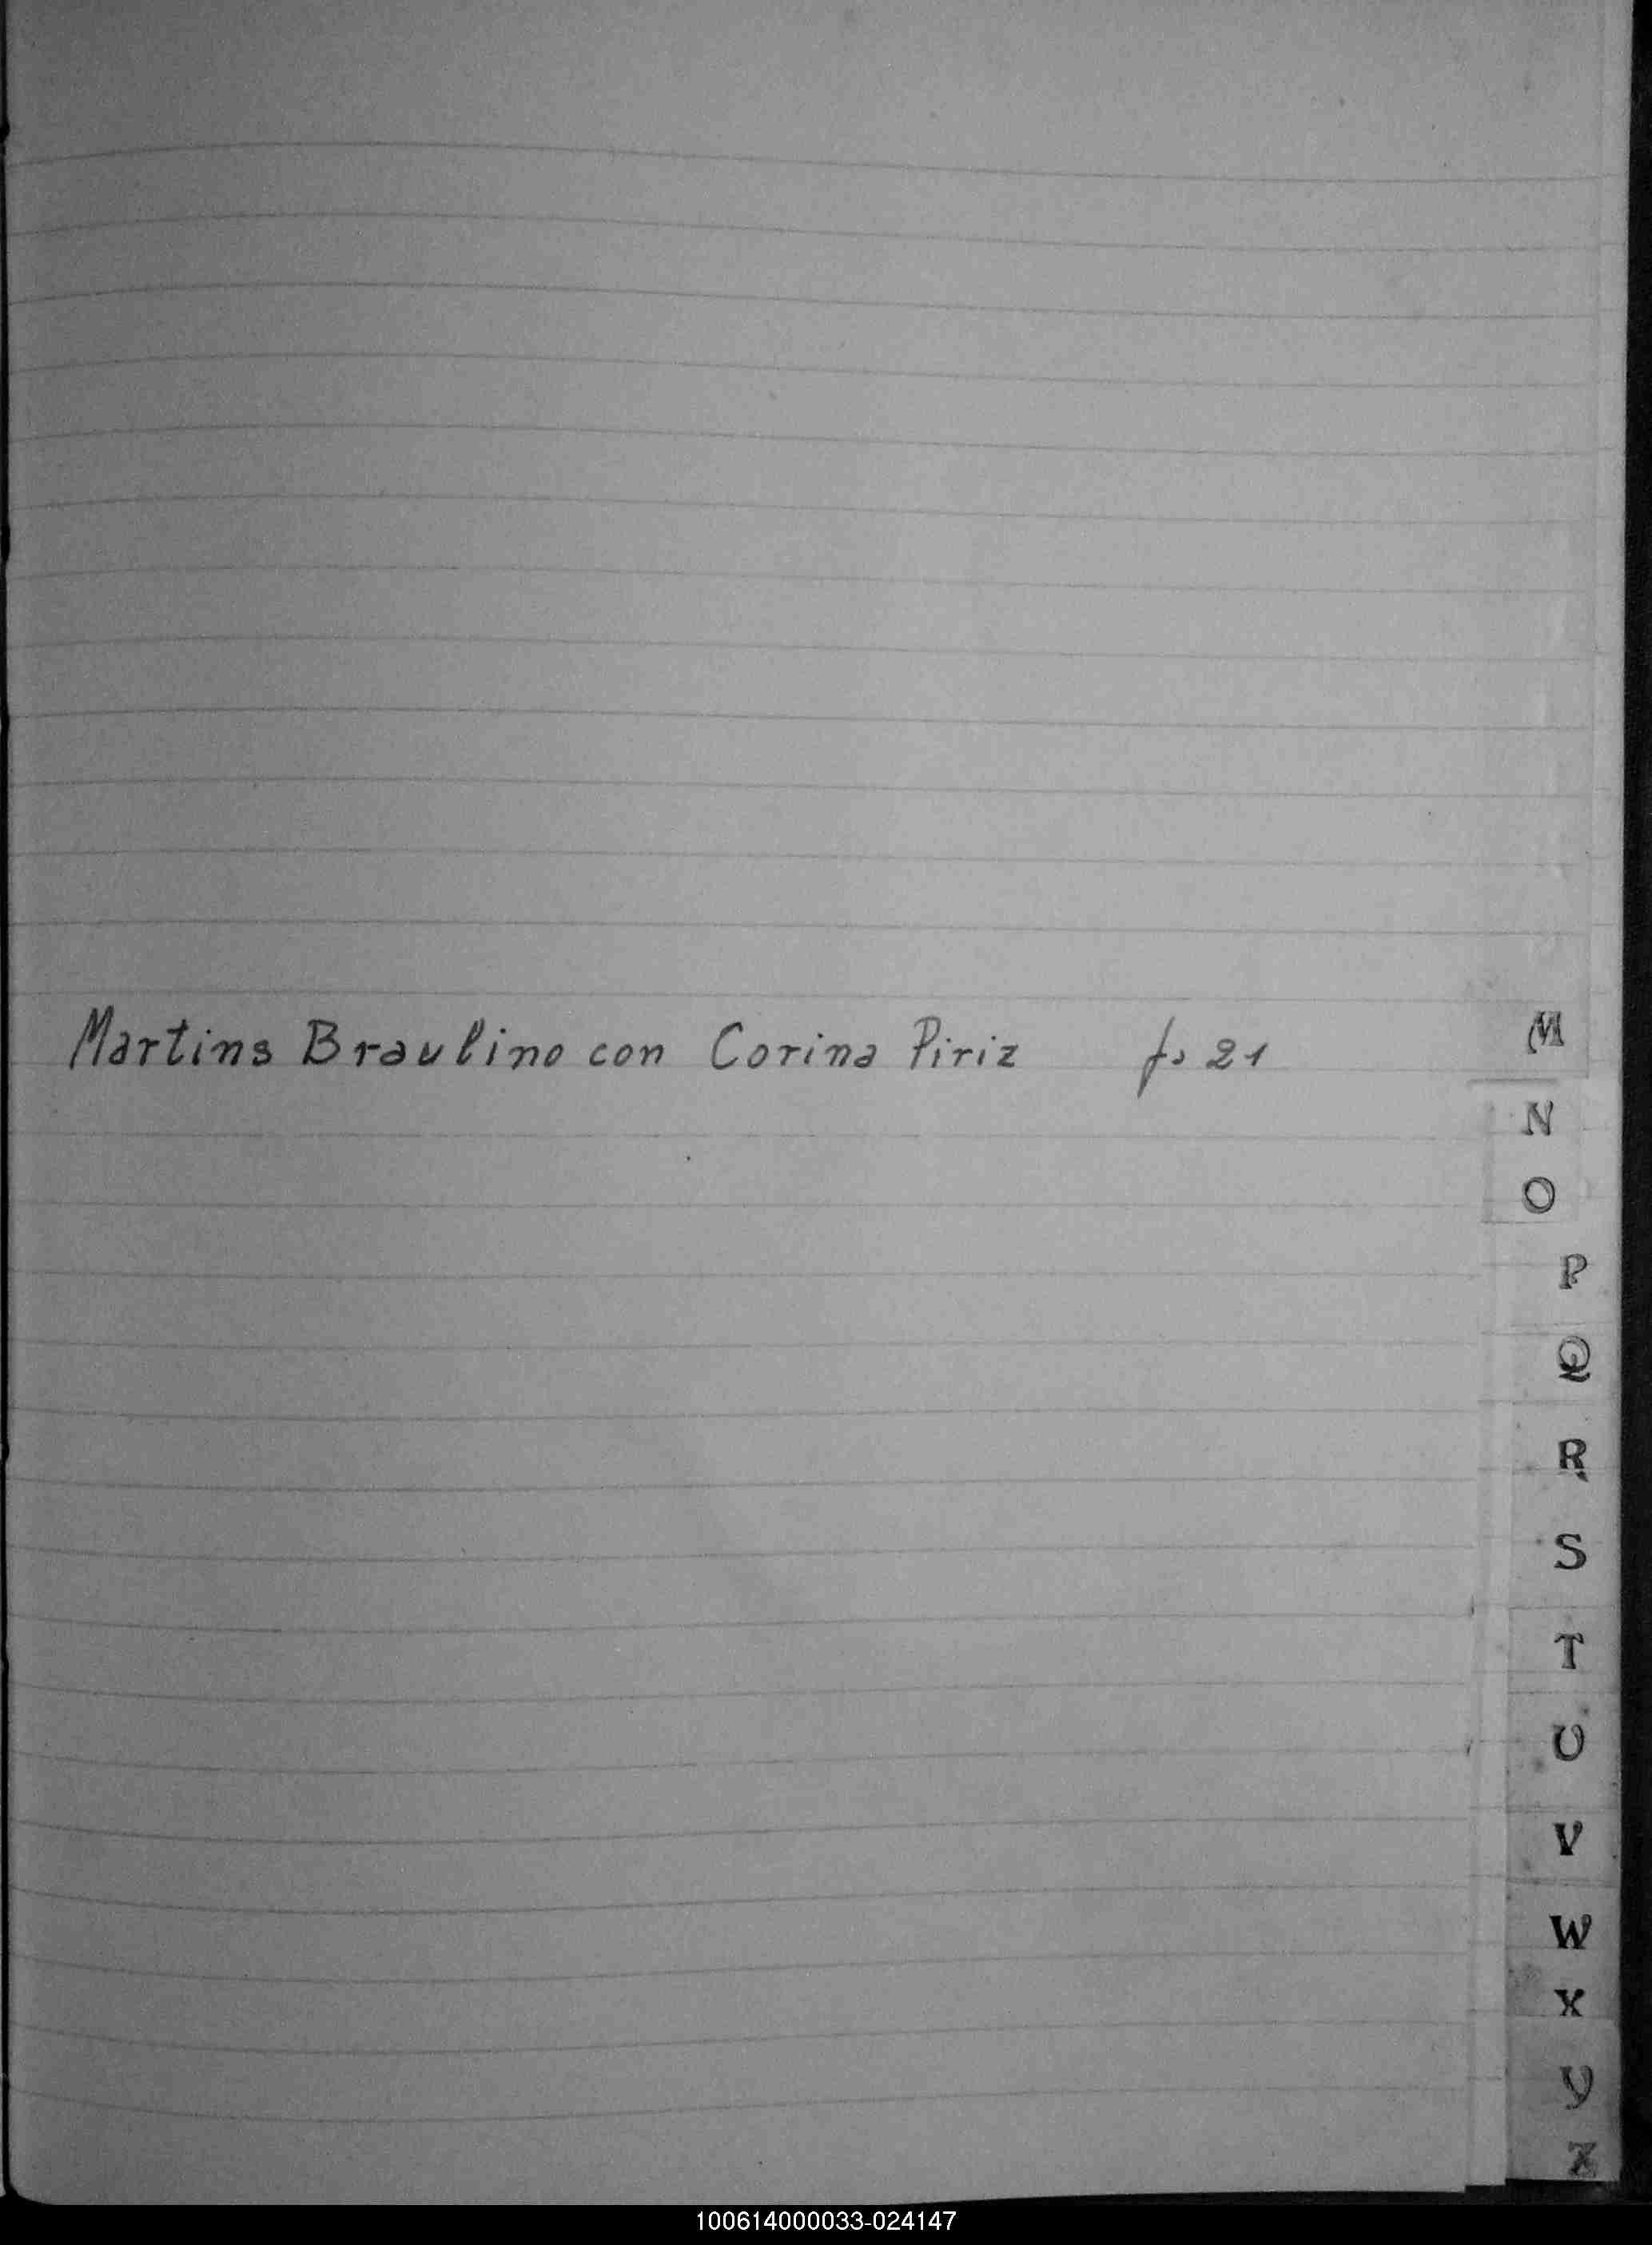 Martins Braulino con Corina Piriz fs 21
M
N
O
P
Q
R
S
T
U
V
W
X
Y
Z
100614000033-024147